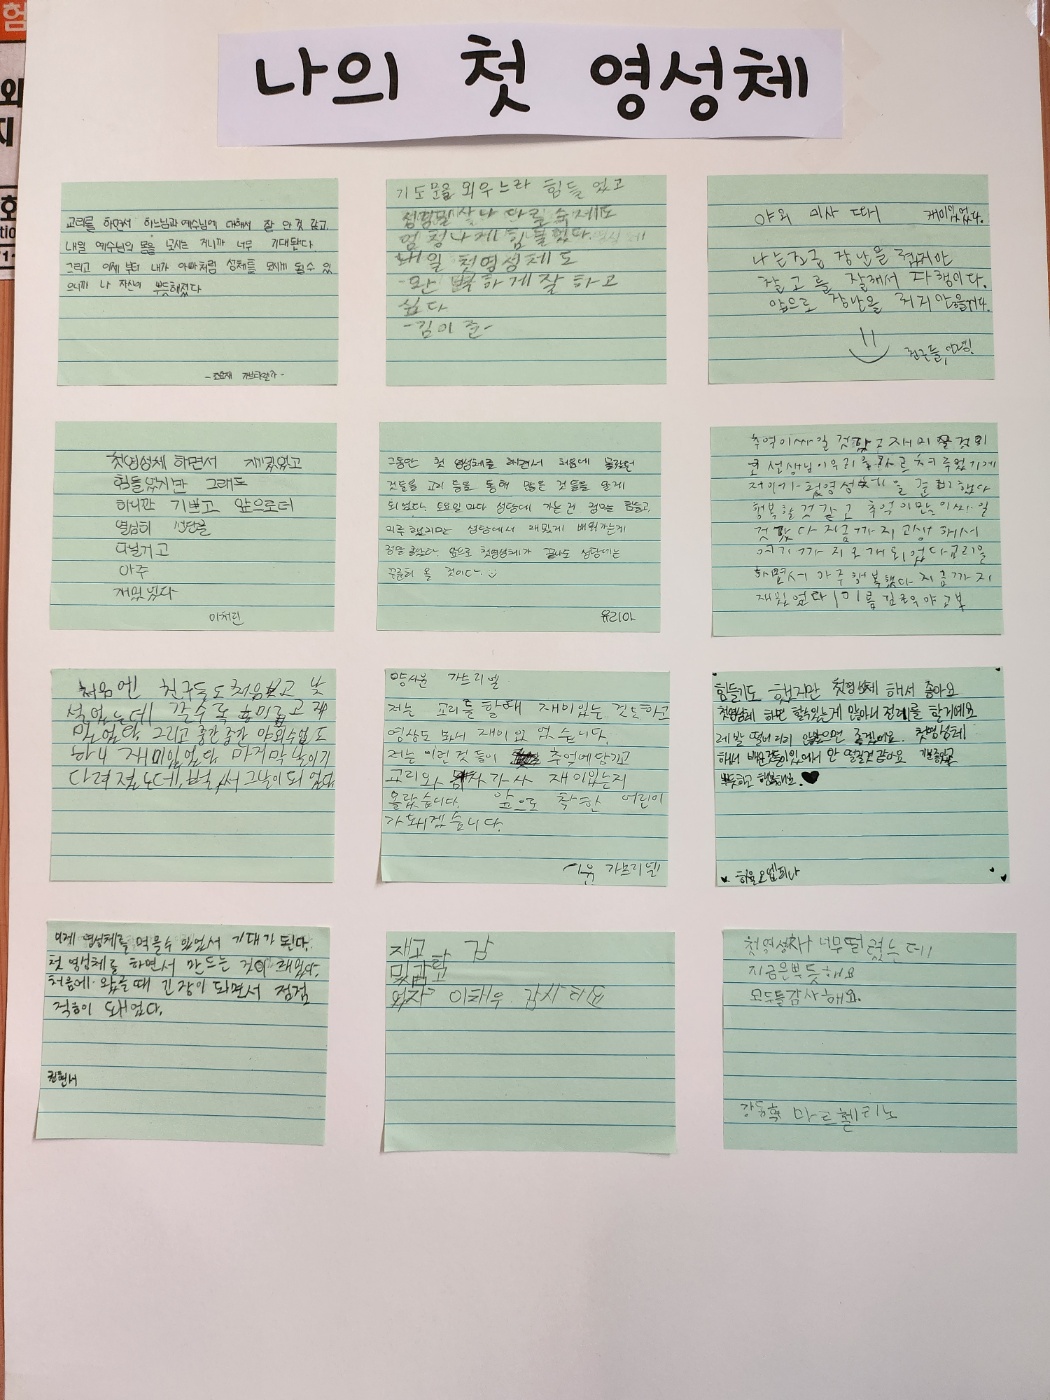 험
외
지
회
나의 첫 영성체
교리를 하면서 하느님과 예수님에 대해서 잘 안 것 같고
내일 예수님의 몸을 모시는 거니까 너무 기대된다
그리고 이제 부터 내가 아빠처럼 성체를 모시게 될 수 있
으니까 나 자신이 뿌듯해졌다
기도문을 외우느라 힘들 었고
성경필사나 만 숙제도
엄청나게 힘들었다.
내일 첫영성체 도
완 벽 하게 잘 하고
싶다
-김이준-
야외 미사 때 재미있었다.
나는 조금 장난을 쳤지만
찰고를 잘해서 다행이다.
앞으로 장난을 치지 않을거다.
친구들, 안녕!
첫영성체 하면서 재밌었고
힘들었지만 그래도
하니깐 기쁘고 앞으로더
열심히 성당을
다닐거고
아주
재밌었다
이채린
그동안 첫 영성체를 하면서 처음에 몰랐던
것들을 교리 등을 통해 많은 것들을 알게
되었다. 토요일 마다 성당에 가는건 정말 힘들고
피곤했지만 성당에서 재밌게 배워가는게
정말 좋았다. 앞으로 첫영성체가 끝나도 성당에는
꾸준히 올 것이다.
유리아
추억이싸일 것 같고 재미 있을 것 위
로 선생님이우리를 가르쳐 주었기에
저희가 첫영성체을 준비했다
행복할것 같고 추억이많이싸일
것 같다 지금까지 고생 해서
여기 까지 오게 되었다 교리을
하면서 아주 행복했다 지금까지
재밌었다 이름 김 야고보
처음엔 친구들도 처음보고 낯
설었는데 갈수록 흥미롭고 재
밌었다. 그리고 중간중간 야외수업도
하니 재미있었다. 마지막 날이기
다려졌는데, 벌써 그날이 되었다
양시윤 가브리엘
저는 교리를 할때 재미있는 것도하고
영상도 봐서 재미있 었습니다.
저는 이런 것 들이 추억에 남기고
교리와 가사 재미있는지
몰랐습니다. 앞으로 착한 어린이
가돼겠습니다.
시윤 가브리엘
힘들기도 했지만 첫영성체 해서 좋아요
첫영성체 하면 할수있는게 많아서 전례를 할거예요
제발 떨어지지 않았으면 좋겠어요. 첫영성체
해서 배운것들이있어서 안 떨릴것같아요
뿌듯하고 행복해요.
이제 영성체를 먹을수 있어서 기대가 된다.
첫 영성체를 하면서 만드는 것이 재밌다.
처음에 왔을 때 긴장이 되면서 점점
적응이 돼었다.
권현서
재고 감
및
이태우 감사
첫영성체가 너무떨렸는데
지금은뿌듯해요
모두들감사해요.
강동혁 마르첼리노